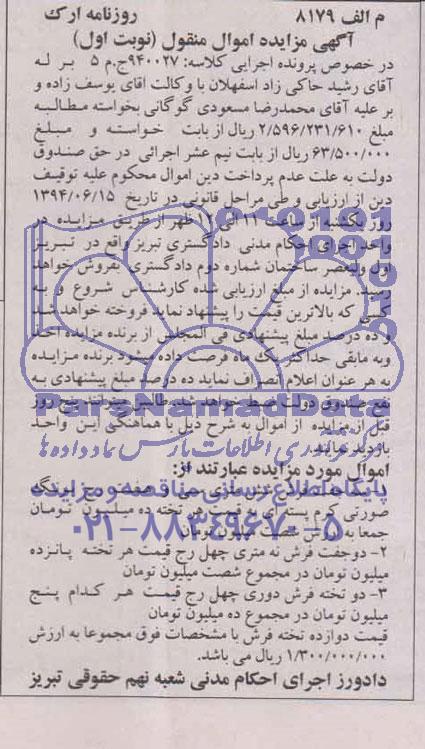 م الف ۸۱۷۹ روزنامه ارک
آگهی مزایده اموال منقول (نوبت اول)
در خصوص پرونده اجرایی کلاسه: ۹۴۰۰۲۷ج.م ۵ بر له
آقای رشید حاکی زاد اسفهلان با وکالت اقای یوسف زاده و
بر علیه آقای محمدرضا مسعودی گوگانی بخواسته مطالبه
مبلغ ۲/۵۹۶/۲۳۱/۶۱۰ ریال از بابت خواسته و مبلغ
۶۳/۵۰۰/۰۰۰ ریال از بابت نیم عشر اجرائی در حق صندوق
دولت به علت عدم پرداخت دین اموال محکوم علیه توقیف
دین از ارزیابی و طی مراحل قانونی در تاریخ ۱۳۹۴/۰۶/۱۵
روز یکشنبه از ساعت ۱۱ الی ۱۲ ظهر از طریق مزایده در
واحد اجرای احکام مدنی دادگستری تبریز واقع در تبریز
اول ولیعصر ساختمان شماره دوم دادگستری بفروش خواهد
رسید. مزایده از مبلغ ارزیابی شده کارشناس شروع و به
کسی که بالاترین قیمت را پیشنهاد نماید فروخته خواهد شد
و ده درصد مبلغ پیشنهادی فی المجلس از برنده مزایده اخذ
وبه مابقی حداکثر یک ماه فرصت داده میشود برنده مزایده
به هر عنوان اعلام انصراف نماید ده درصد مبلغ پیشنهادی به
نفع صندوق دولت ضبط خواهد شد. طالبین میتوانند پنج روز
قبل از مزایده از اموال به شرح ذیل با هماهنگی این واحد
بازدید نمایند.
اموال مورد مزایده عبارتند از:
صورتی کرم پسته ای به قیمت هر تخته ده میلیون تومان
جمعا به ارزش شصت میلیون تومان
۲- دوجفت فرش نه متری چهل رج قیمت هر تخته پانزده
میلیون تومان در مجموع شصت میلیون تومان
۳- دو تخته فرش دوری چهل رج قیمت هر کدام پنج
میلیون تومان در مجموع ده میلیون تومان
قیمت دوازده تخته فرش با مشخصات فوق مجموعا به ارزش
۱/۳۰۰/۰۰۰/۰۰۰ ریال می باشد.
دادورز اجرای احکام مدنی شعبه نهم حقوقی تبریز
ParsNamadData
پایگاه اطلاع رسانی مناقصه و مزایده
۰۲۱-۸۸۳۴۹۶۷۰-۵